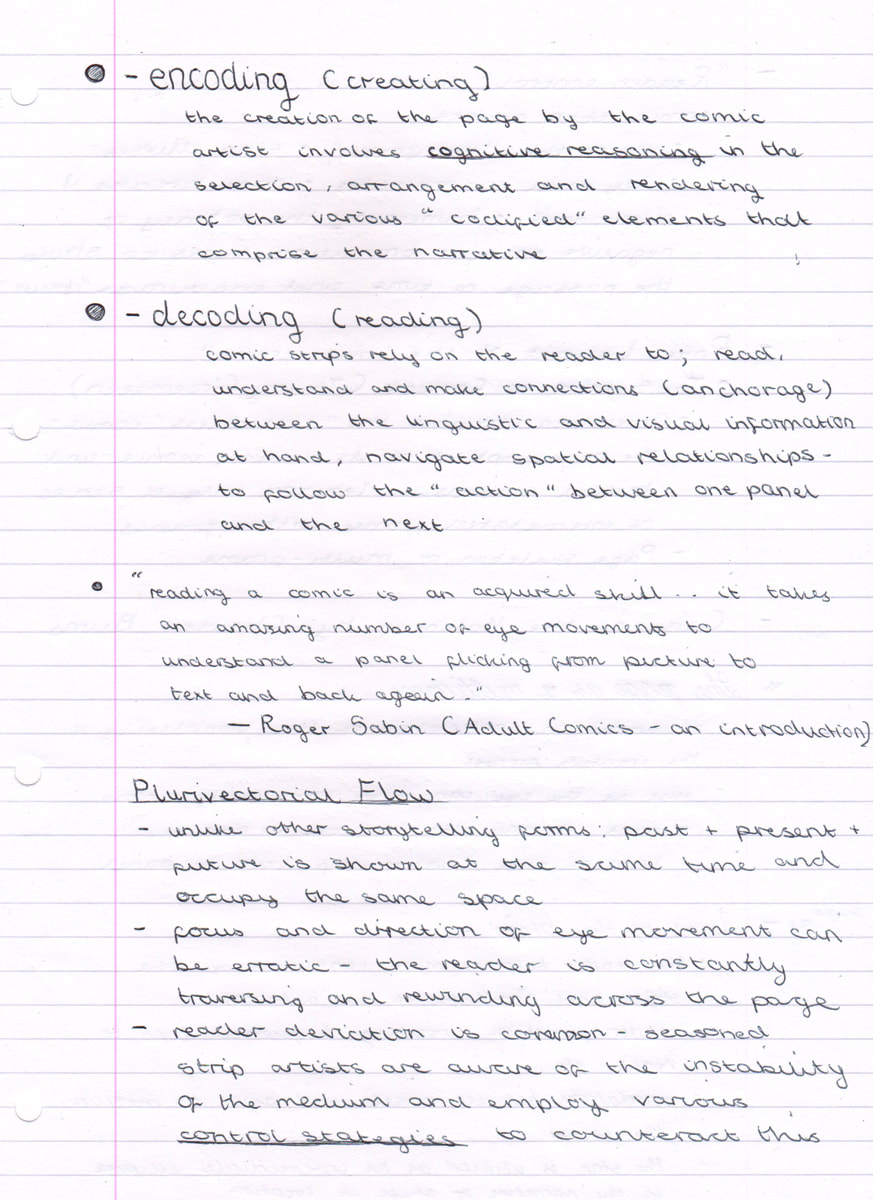 - encoding (creating)
the creation of the page by the comic
artist involves cognitive reasoning in the
selection, arrangement and rendering
of the various "codified" elements that
comprise the narrative
- decoding (reading)
comic strips rely on the reader to; read,
understand and make connections (anchorage)
between the linguistic and visual information
at hand, navigate spatial relationships -
to follow the "action" between one panel
and the next
"reading a comic is an acquired skill... it takes
an amazing number of eye movements to
understand a panel flicking from picture to
text and back again."
— Roger Sabin (Adult Comics - an introduction)
Plurivectorial Flow
- unlike other storytelling forms; past + present +
future is shown at the same time and
occupy the same space
- focus and direction of eye movement can
be erratic - the reader is constantly
traversing and rewinding across the page
- reader deviation is common - seasoned
strip artists are aware of the instability
of the medium and employ various
control stategies to counteract this